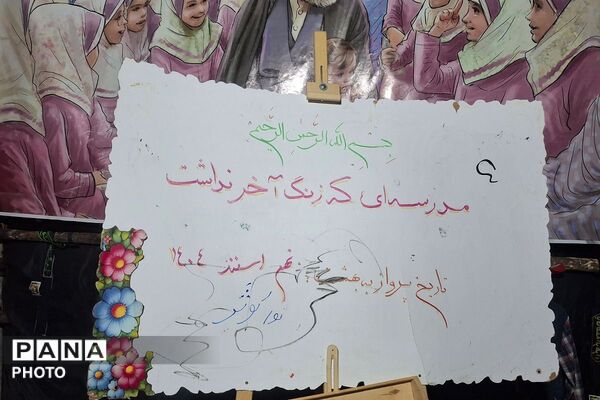 بسم الله الرحمن الرحیم
مدرسه‌ای که زنگ آخر نداشت
تاریخ پرواز به بهشت نهم اسفند ۱۴۰۴
PANA
PHOTO